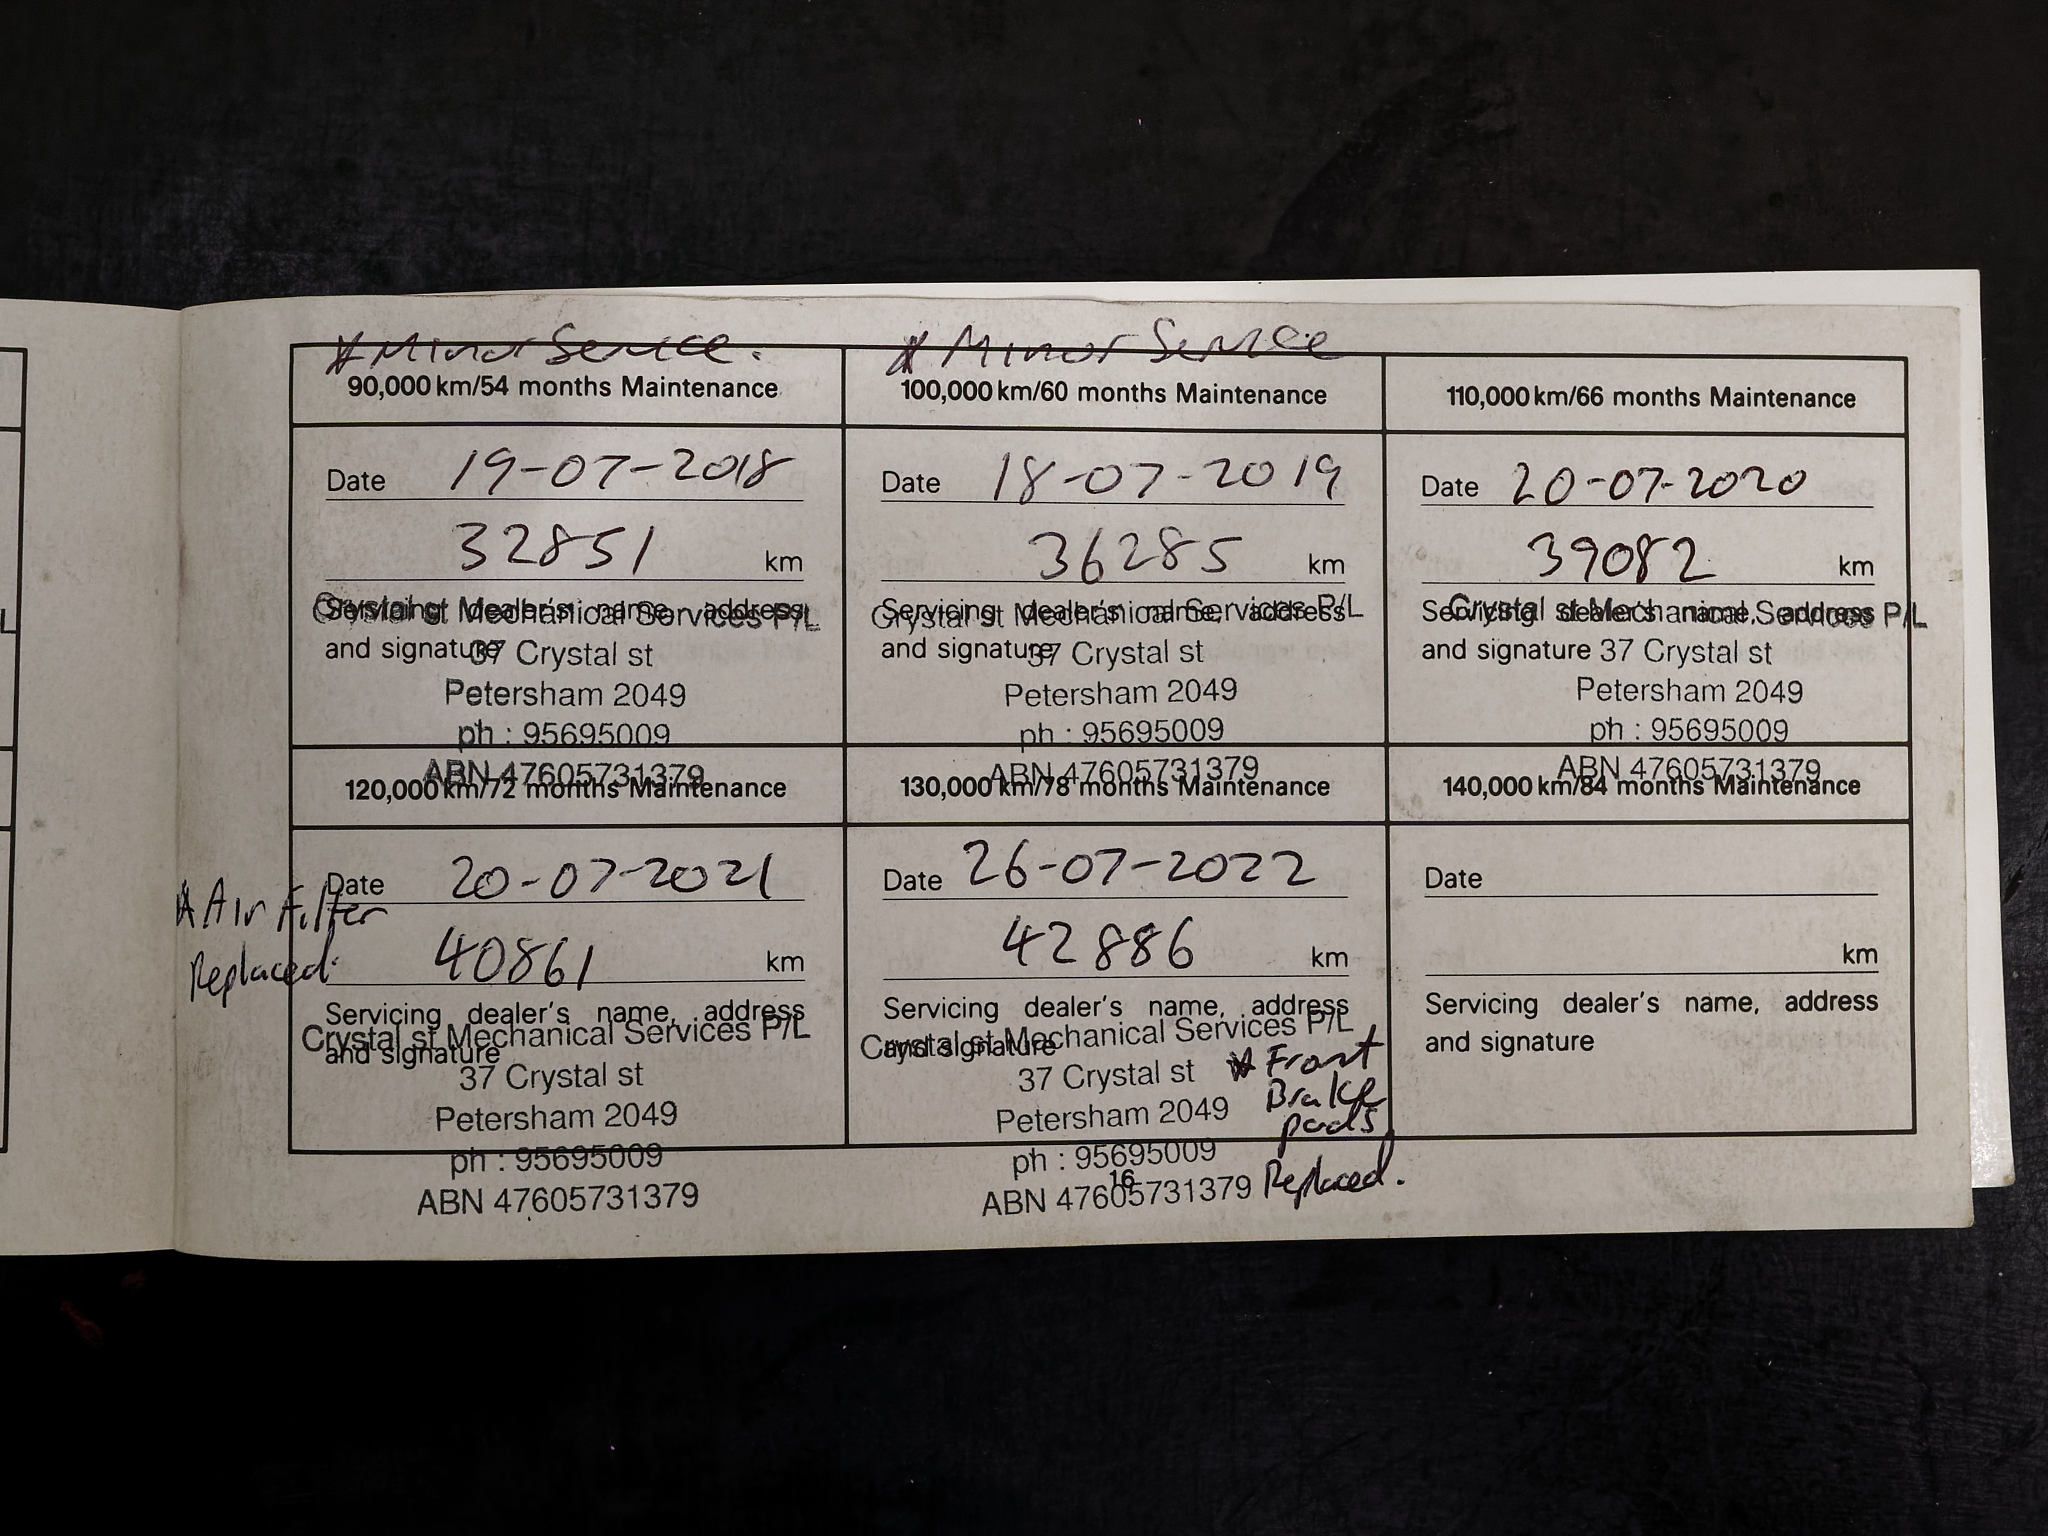 * Minor Service.
90,000 km/54 months Maintenance
Date 19-07-2018
32851 km
Servicing dealer's name, address
Crystal st Mechanical Services P/L
and signature
37 Crystal st
Petersham 2049
ph : 95695009
ABN 47605731379
* Minor Service
100,000 km/60 months Maintenance
Date 18-07-2019
36285 km
Servicing dealer's name, address
Crystal st Mechanical Services P/L
and signature
37 Crystal st
Petersham 2049
ph : 95695009
ABN 47605731379
110,000 km/66 months Maintenance
Date 20-07-2020
39082 km
Servicing dealer's name, address
Crystal st Mechanical Services P/L
and signature
37 Crystal st
Petersham 2049
ph : 95695009
ABN 47605731379
120,000 km/72 months Maintenance
Date 20-07-2021
* Air Filter
Replaced.
40861 km
Servicing dealer's name, address
Crystal st Mechanical Services P/L
and signature
37 Crystal st
Petersham 2049
ph : 95695009
ABN 47605731379
130,000 km/78 months Maintenance
Date 26-07-2022
42886 km
Servicing dealer's name, address
Crystal st Mechanical Services P/L
and signature
37 Crystal st
Petersham 2049
ph : 95695009
ABN 47605731379
* Front
Brake
pads
Replaced.
140,000 km/84 months Maintenance
Date
km
Servicing dealer's name, address
and signature
16
L